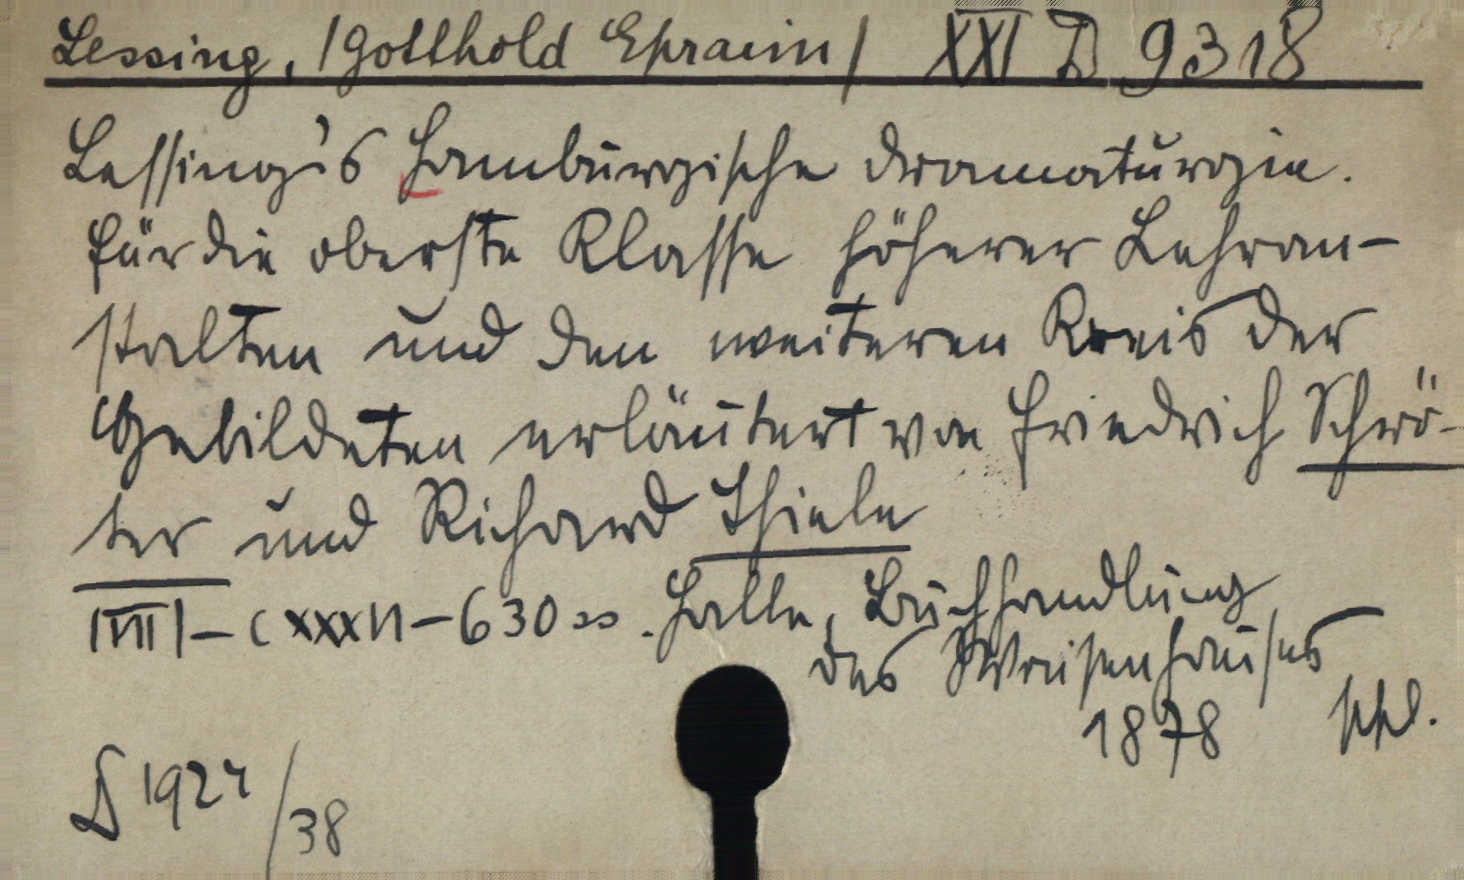 Lessing, /Gotthold Ephraim/ XXI D 9318
Lessing's Hamburgische Dramaturgie.
Für die oberste Klasse höherer Lehran-
stalten und den weiteren Kreis der
Gebildeten erläutert von Friedrich Schrö-
ter und Richard Thiele
|VIII|-CXXXVI-630 SS. Halle, Buchhandlung
des Waisenhauses
1878
D 1924/38